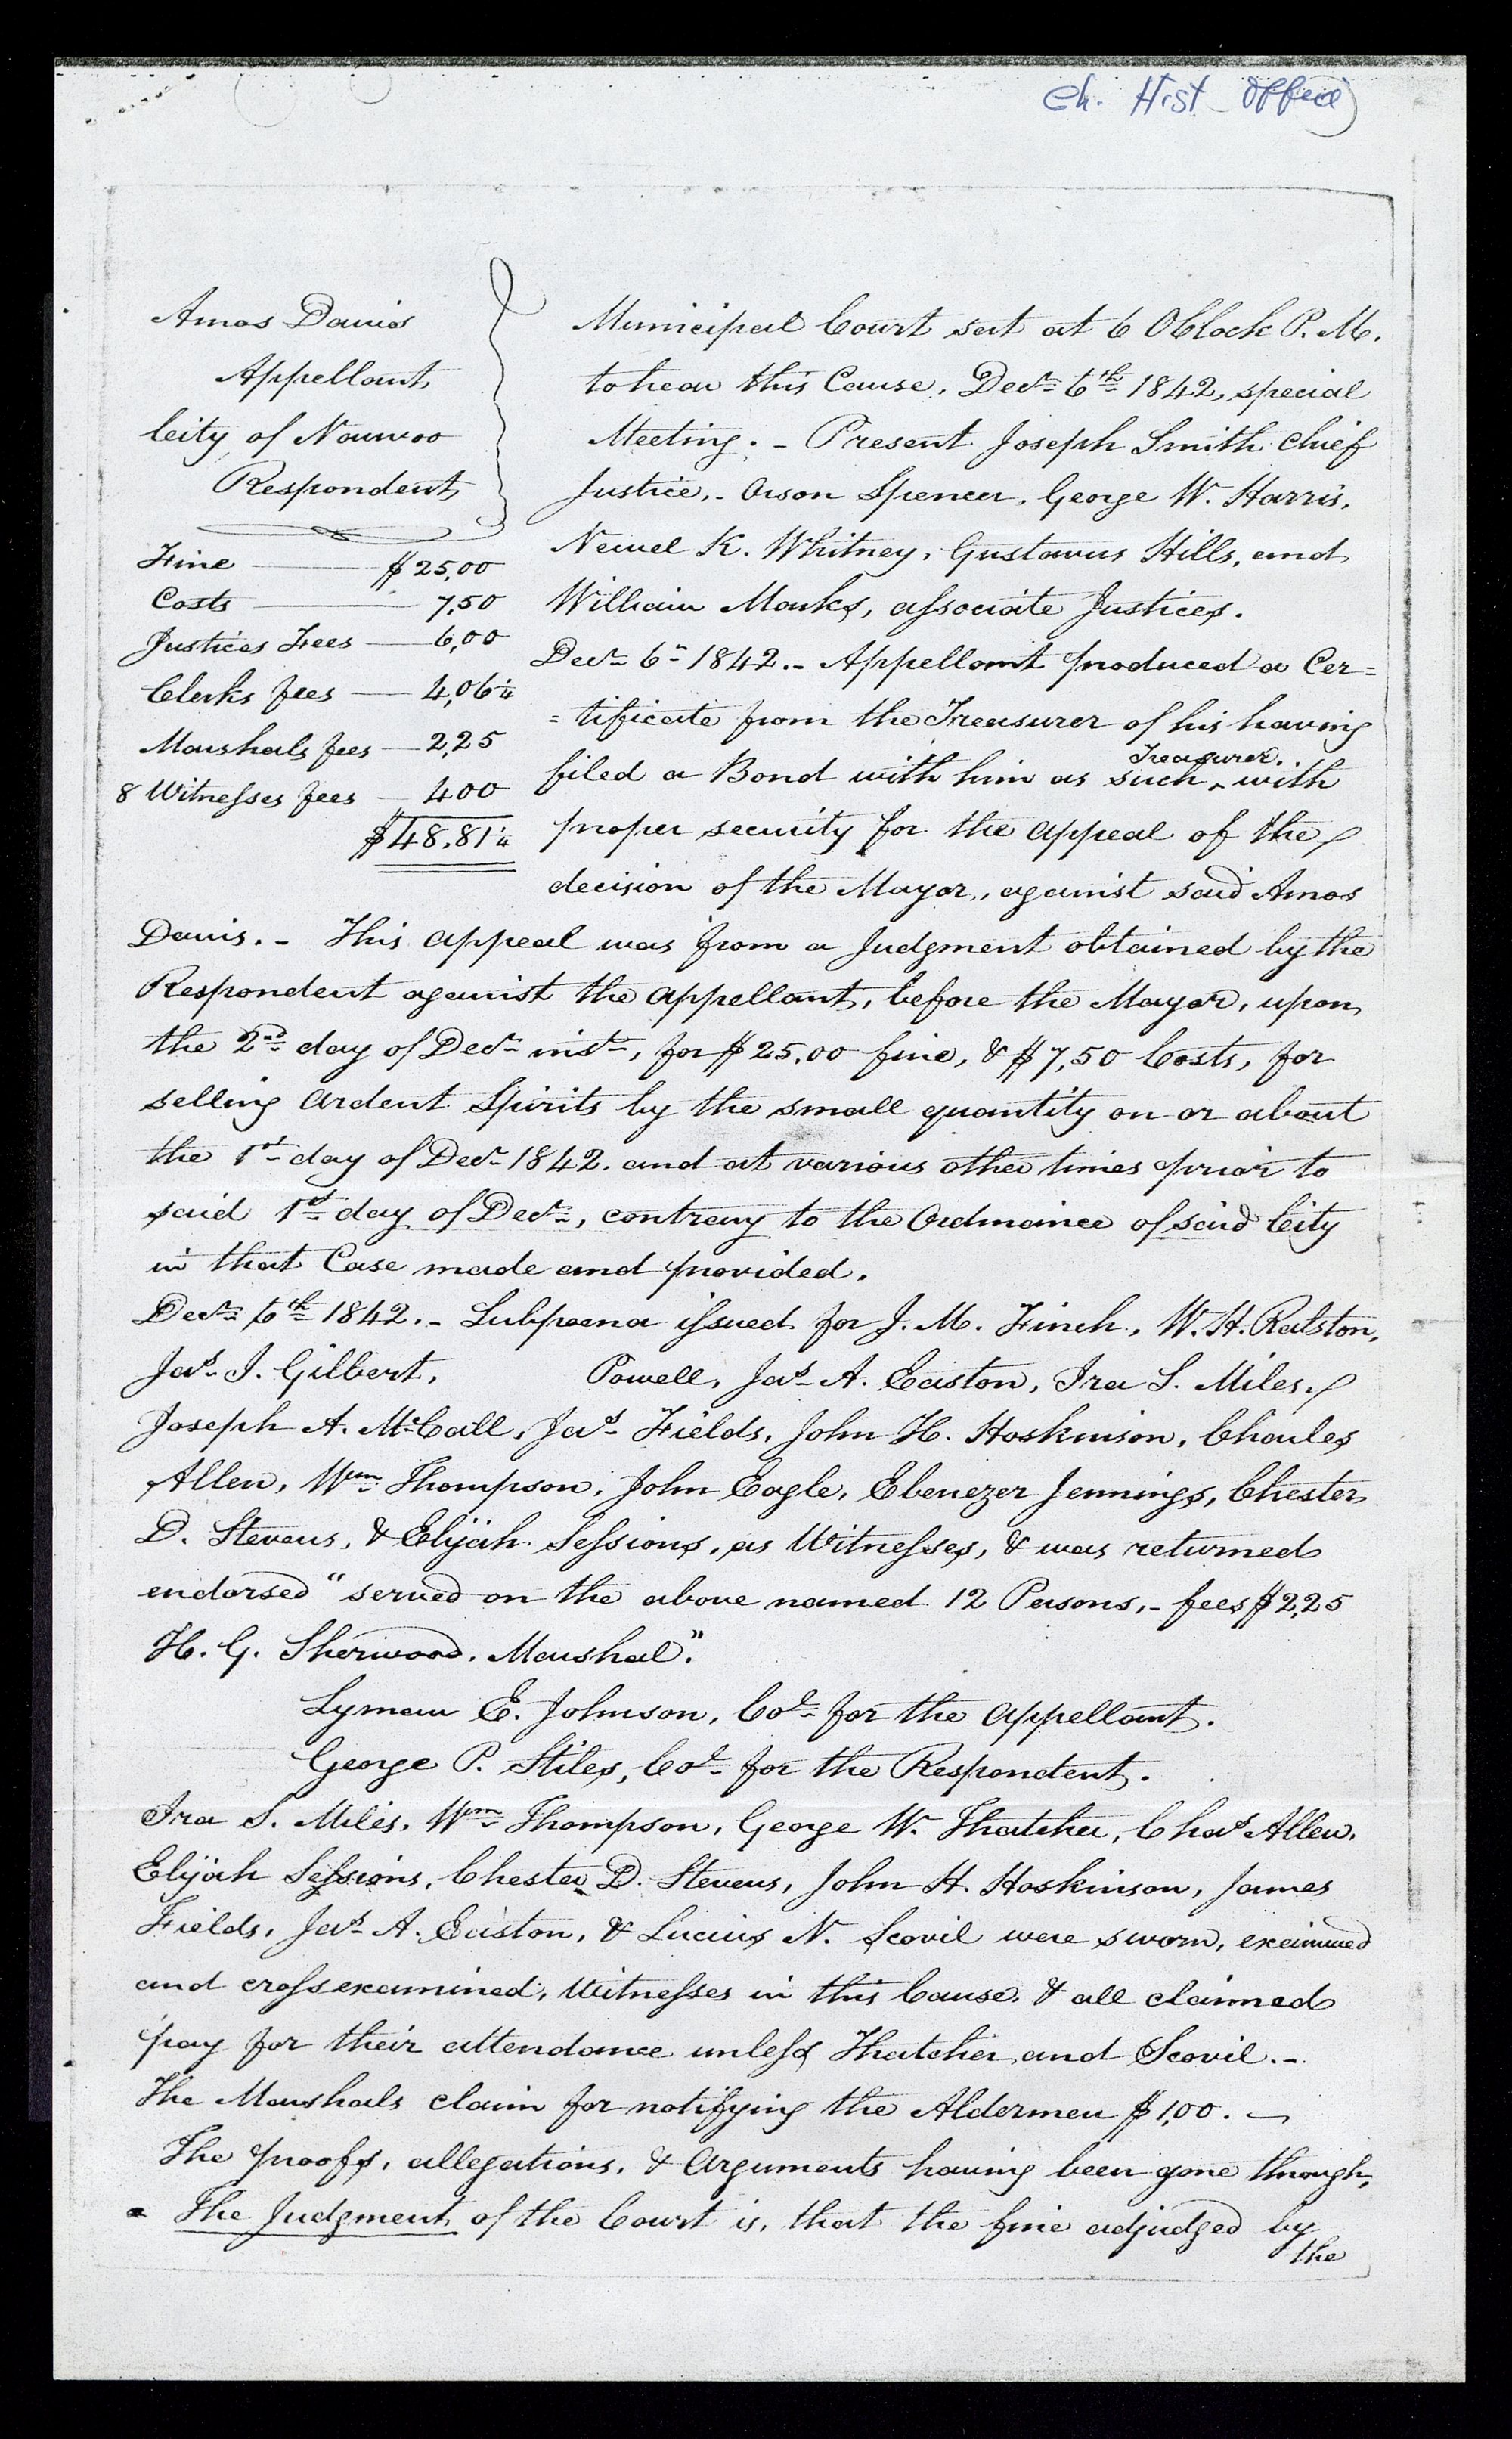 Ch. Hist. Office
Amos Davis
Appellant,
City of Nauvoo
Respondent,
Fine $25,00
Costs 7,50
Justices Fees 6,00
Clerks fees 4,06¼
Marshals fees 2,25
8 Witnesses fees 400
$48,81¼
Municipal Court sat at 6 OClock P. M.
to hear this Cause, Decr. 6th 1842, special
Meeting. - Present Joseph Smith chief
Justice, - Orson Spencer, George W. Harris,
Newel K. Whitney, Gustavus Hills, and
William Marks, associate Justices.
Decr. 6th 1842. - Appellant produced a Cer=
=tificate from the Treasurer of his having
filed a Bond with him as such ^Treasurer. with
proper security for the appeal of the
decision of the Mayor, against said Amos
Davis. - This appeal was from a Judgment obtained by the
Respondent against the appellant, before the Mayor, upon
the 2nd day of Decr. inst., for $25,00 fine, & $7,50 Costs, for
selling ardent Spirits by the small quantity on or about
the 1st day of Decr. 1842. and at various other times prior to
said 1st day of Decr., contrary to the Ordinance of said City
in that Case made and provided.
Decr. 6th 1842. - Subpoena issued for J. M. Finch, W. H. Ralston,
Jas. J. Gilbert, Powell, Jas. A. Easton, Ira S. Miles,
Joseph A. McCall, Jas. Fields, John H. Hoskinson, Charles
Allen, Wm. Thompson, John Eagle, Ebenezer Jennings, Chester
D. Stevens, & Elijah Sessions, as Witnesses, & was returned
endorsed "served on the above named 12 Persons, - fees $2,25
H. G. Sherwood, Marshal".
Lyman E. Johnson, Col. for the appellant.
George P. Stiles, Col. for the Respondent.
Ira S. Miles, Wm. Thompson, George W. Thatcher, Chas. Allen,
Elijah Sessions, Chester D. Stevens, John H. Hoskinson, James
Fields, Jas. A. Easton, & Lucius N. Scovil were sworn, examined
and cross examined, Witnesses in this Cause, & all claimed
pay for their attendance unless Thatcher and Scovil. -
The Marshals claim for notifying the Aldermen $1,00. -
The proofs, allegations, & Arguments having been gone through,
The Judgment of the Court is, that the fine adjudged by
the